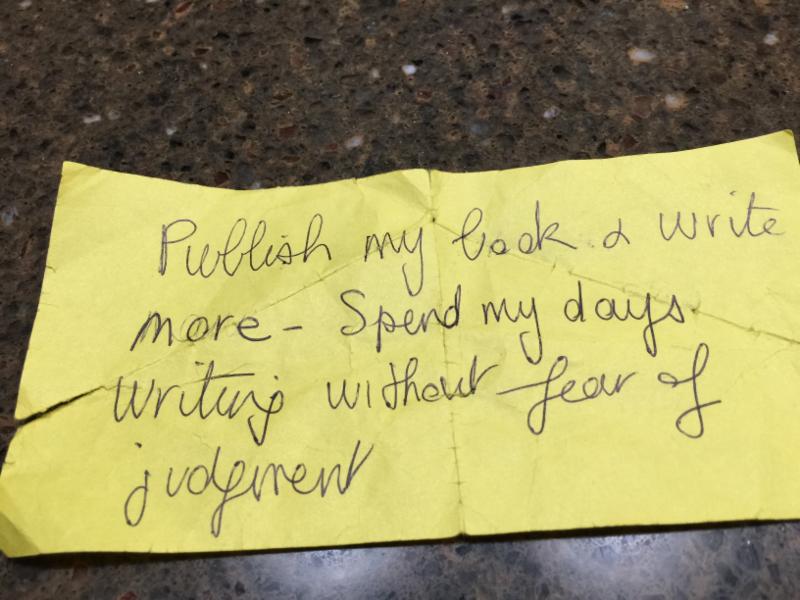 Publish my book & write
more - Spend my days
Writing without fear of
judgment